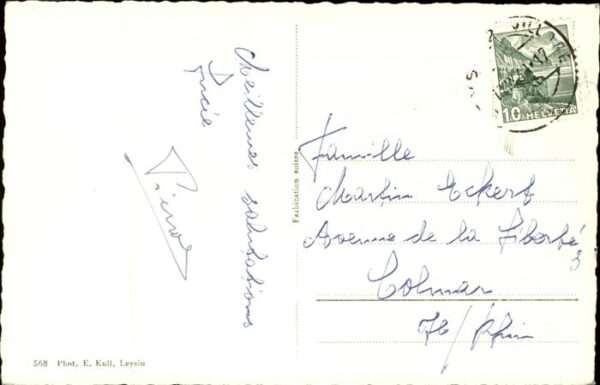 Meilleures salutations
Lucie
Fabrication suisse
Famille
Martin Eckert
Avenue de la Liberté
3
Colmar
Ht/Rhin
10 HELVETIA
568 Phot. E. Kull, Leysin